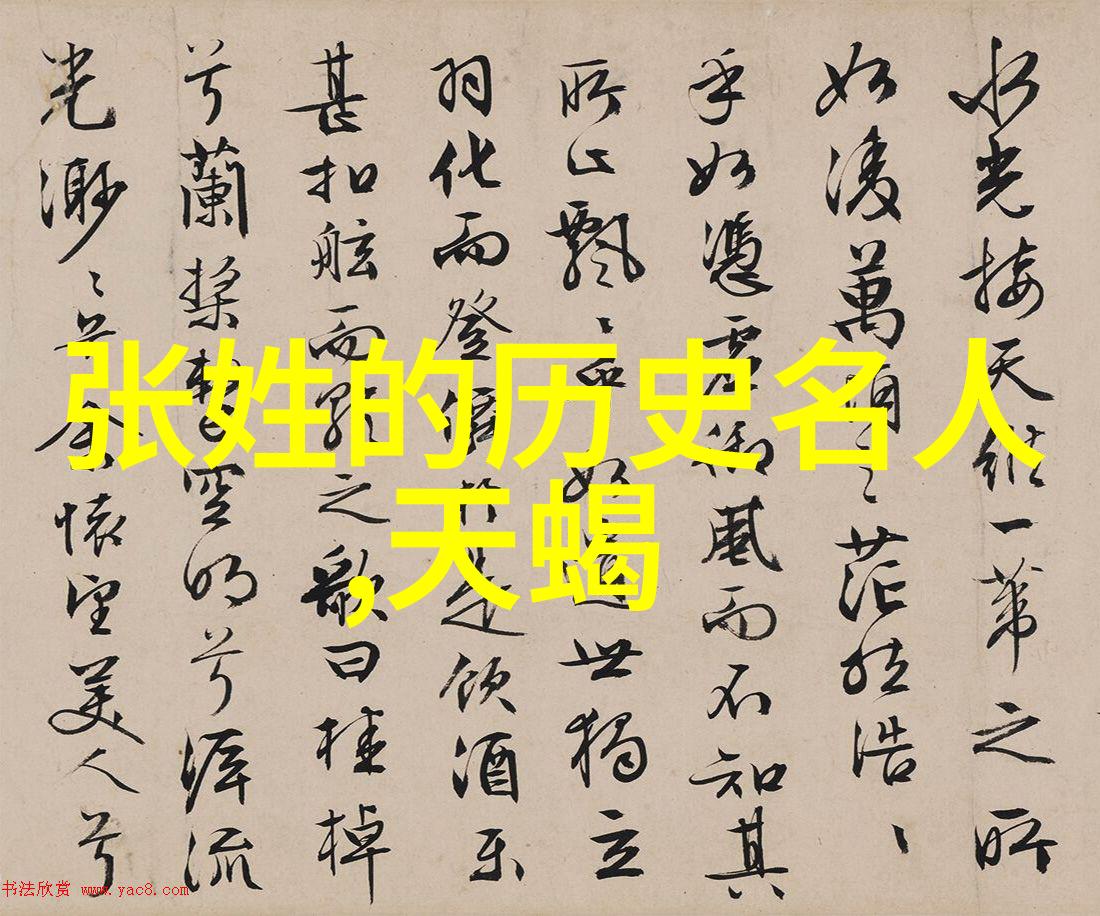 水光接天縱一葦之所
如凌萬頃之茫然浩〻
乎如憑虛御風而不知其
所止飄〻乎如遺世獨立
羽化而登僊於是飲酒樂
甚扣舷而歌之歌曰桂棹
兮蘭槳擊空明兮泝流
光渺〻兮余懷望美人兮
张姓的历史名人
,天蝎
书法欣赏 www.yac8.com